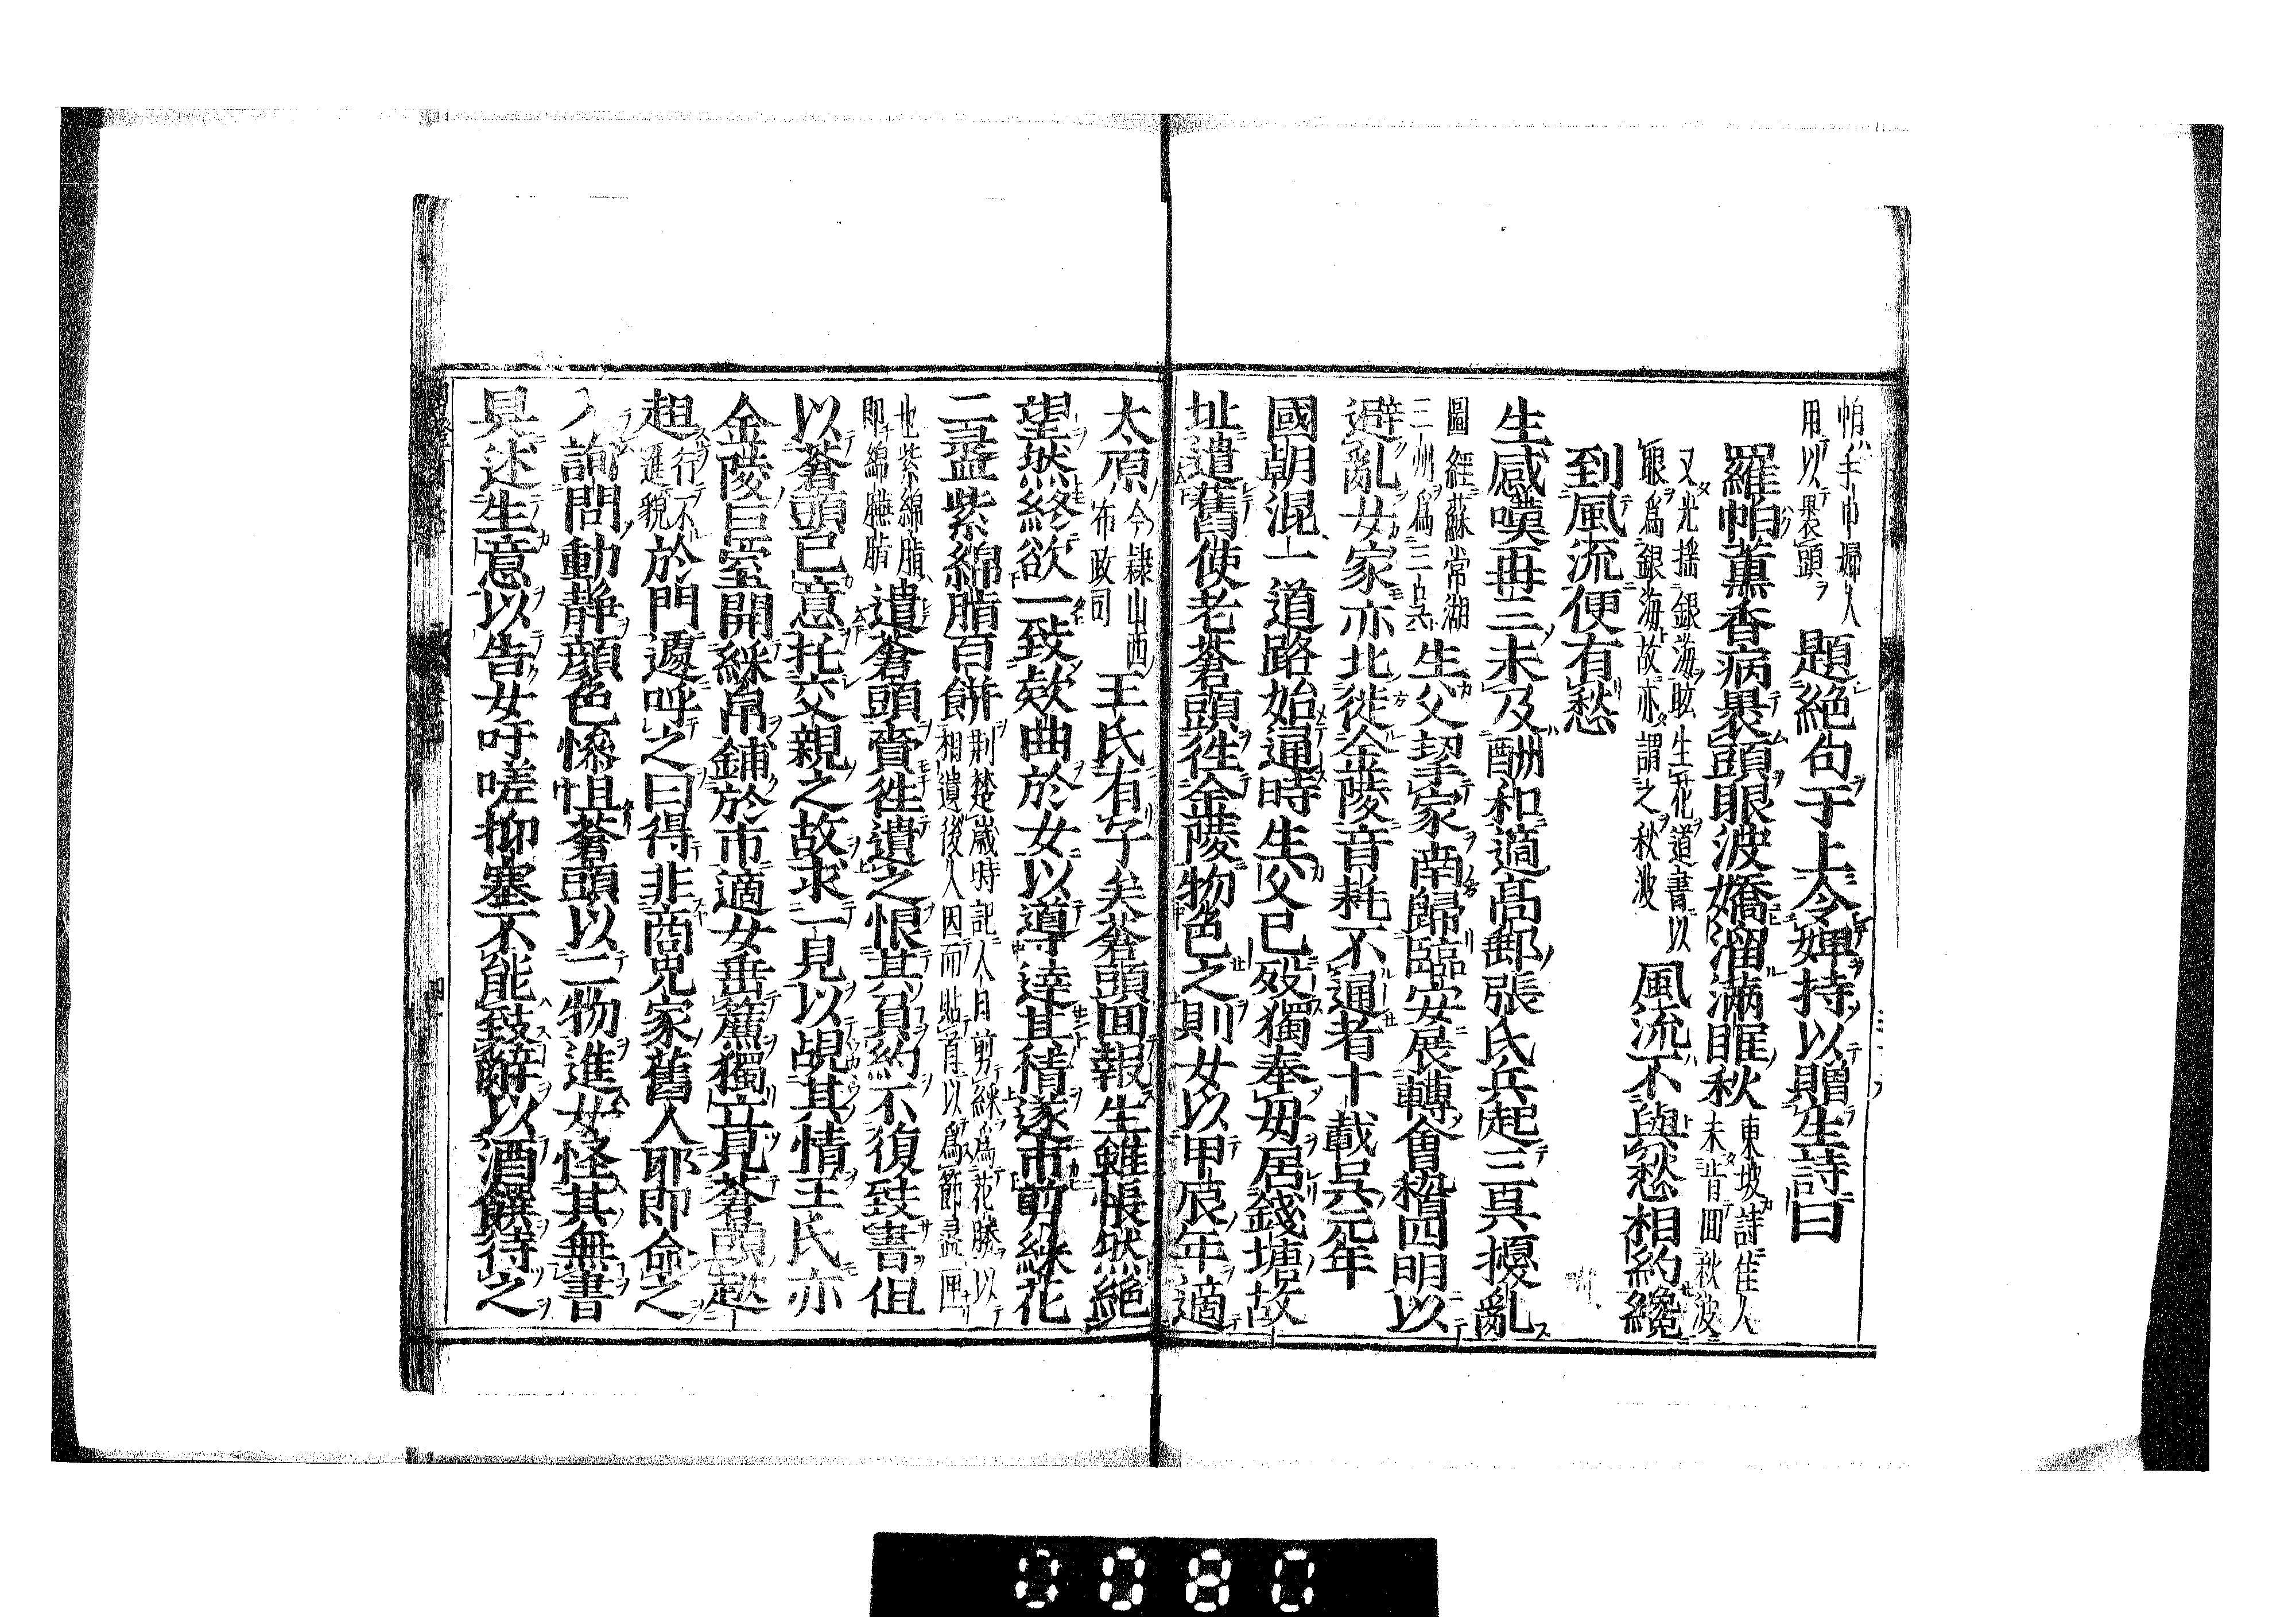 帕手巾婦人用以裹頭 題絶句于上令婢持以贈生詩曰
羅帕薫香病裹頭眼波嬌溜滿眶秋 東坡詩佳人未肯回秋波
又光揺銀海眩生花道書以眼爲銀海故亦謂之秋波 風流不與愁相約纔
到風流便有愁
生感嘆再三未及酬和適高郵張氏兵起三呉擾亂
圖經蘇常湖三州爲三呉 生父挈家南歸臨安展轉會稽四明以
避亂女家亦北徙金陵音耗不通者十載呉元年
國朝混一道路始通時生父已歿獨奉母居錢塘故
址遣舊使老蒼頭徃金陵物色之則女以甲辰年適
太原 今隷山西布政司 王氏有子矣蒼頭回報生雖悵然絶
望然終欲一致欵曲於女以導達其情遂市剪綵花
二盝紫綿脂百餅 荆楚歳時記人日剪綵爲花勝以相遺後人因而貼首以爲飾盝匣
也紫綿脂即綿臙脂 遣蒼頭賫徃遺之恨其負約不復致書但
以蒼頭已意托交親之故求一見以覘其情王氏亦
金陵巨室開綵帛鋪於市適女垂簾獨立見蒼頭趑
趄 行不進貌 於門遽呼之曰得非商兄家舊人耶即命之
入詢問動静顔色惨怛蒼頭以二物進女怪其無書
具述生意以告女吁嗟抑塞不能致辭以酒饌待之
0080